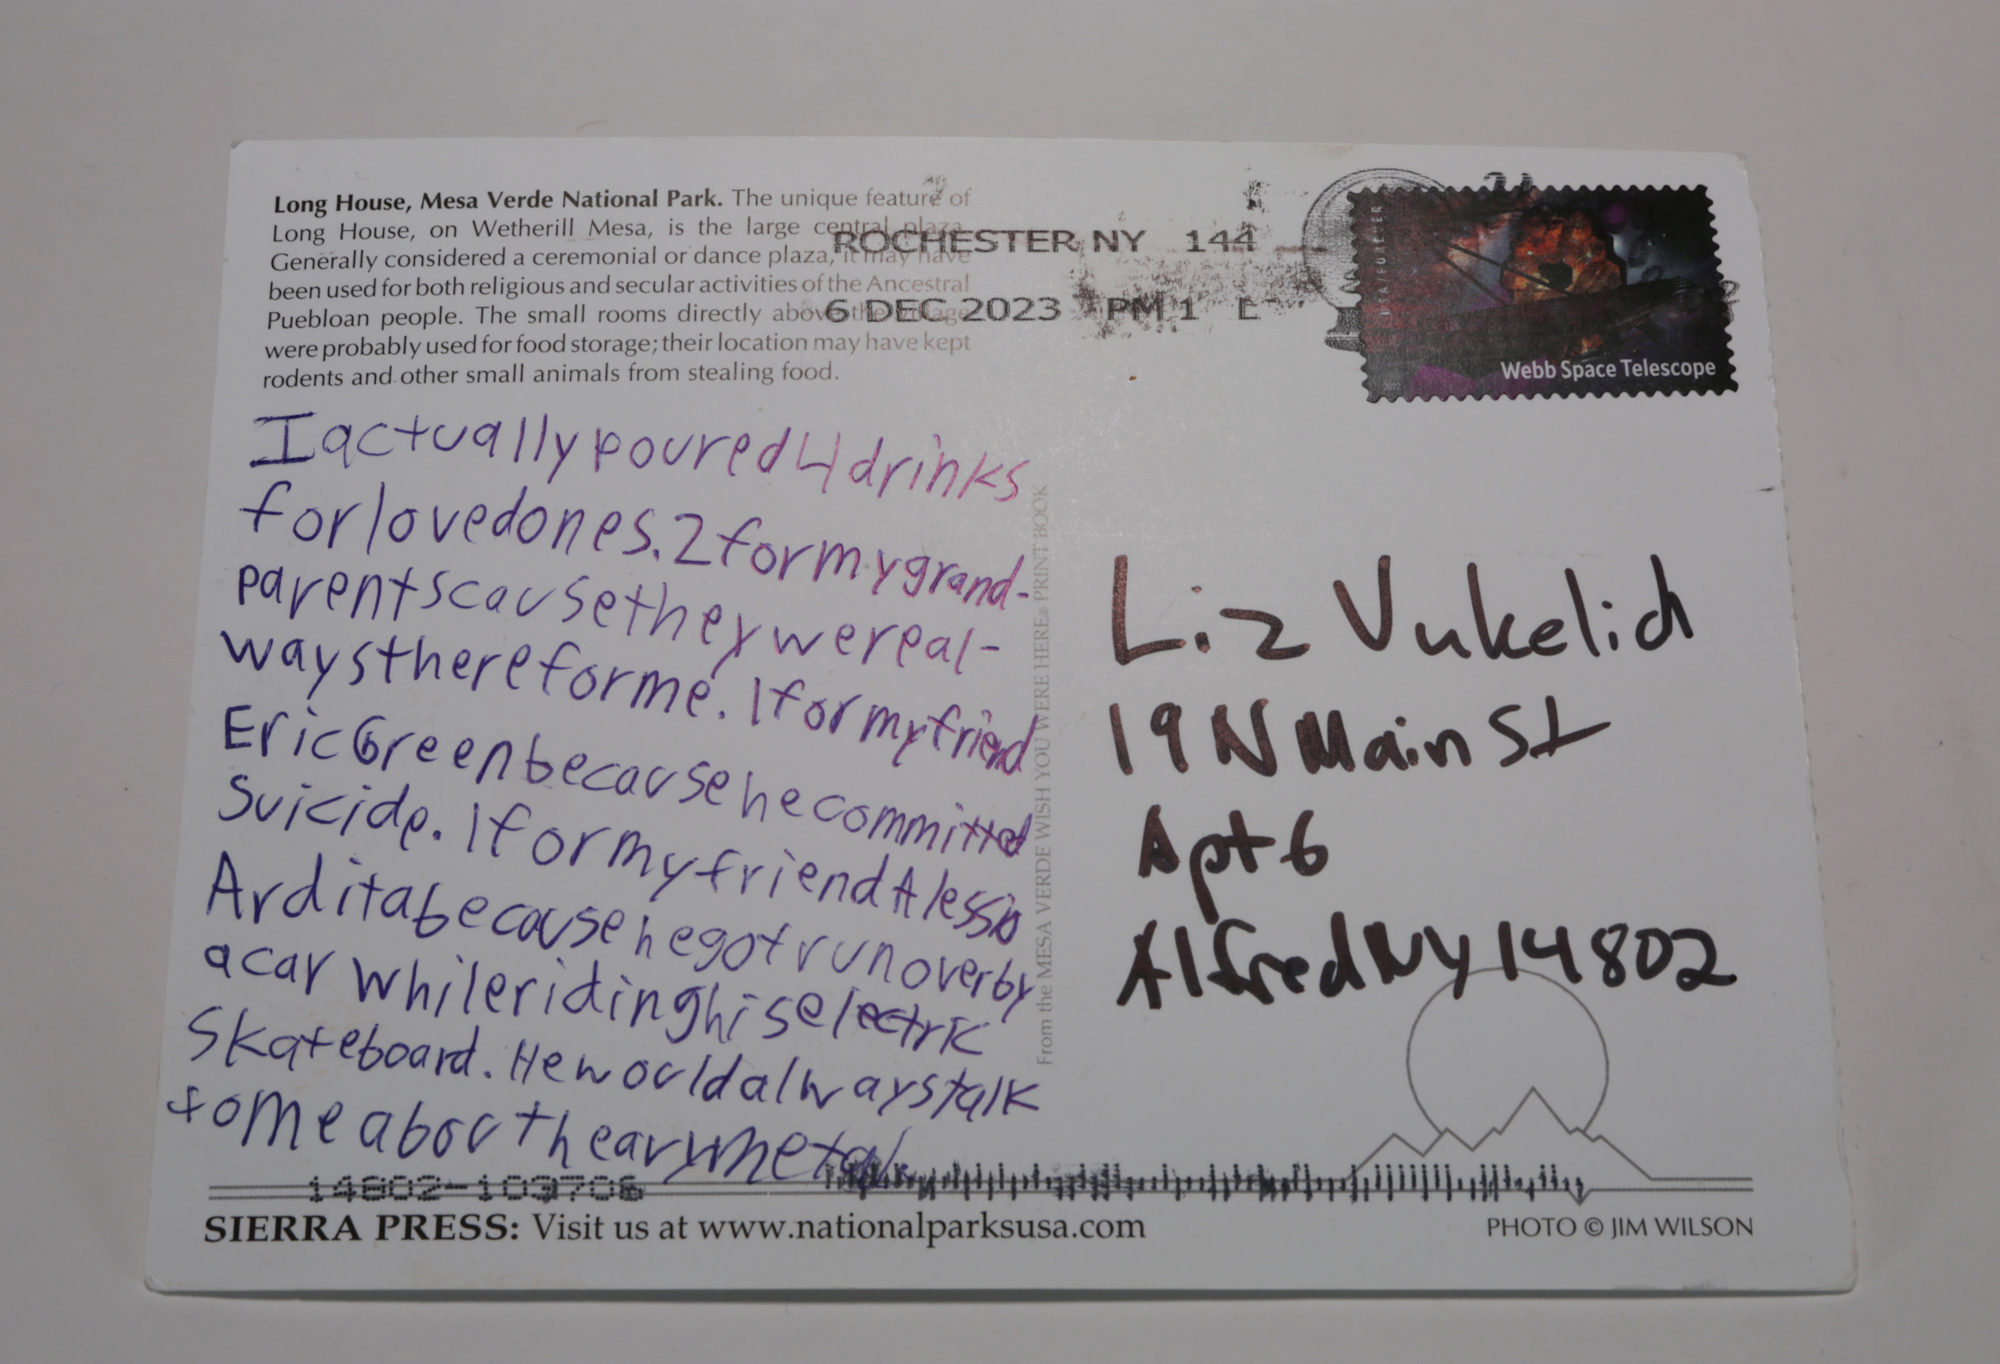 Long House, Mesa Verde National Park. The unique feature of
Long House, on Wetherill Mesa, is the large central plaza.
Generally considered a ceremonial or dance plaza, it may have
been used for both religious and secular activities of the Ancestral
Puebloan people. The small rooms directly above the village
were probably used for food storage; their location may have kept
rodents and other small animals from stealing food.
ROCHESTER NY 144
6 DEC 2023 PM 1 L
Webb Space Telescope
I actually poured 4 drinks
for loved ones. 2 for my grand-
parents cause they were al-
ways there for me. 1 for my friend
Eric Green because he committed
Suicide. 1 for my friend Alessio
Ardita because he got run over by
a car while riding his electric
Skateboard. He would always talk
to me about heavy metal.
From the MESA VERDE WISH YOU WERE HERE® PRINT BOOK
Liz Vukelich
19 N Main St
Apt 6
Alfred NY 14802
14802-103706
SIERRA PRESS: Visit us at www.nationalparksusa.com
PHOTO © JIM WILSON